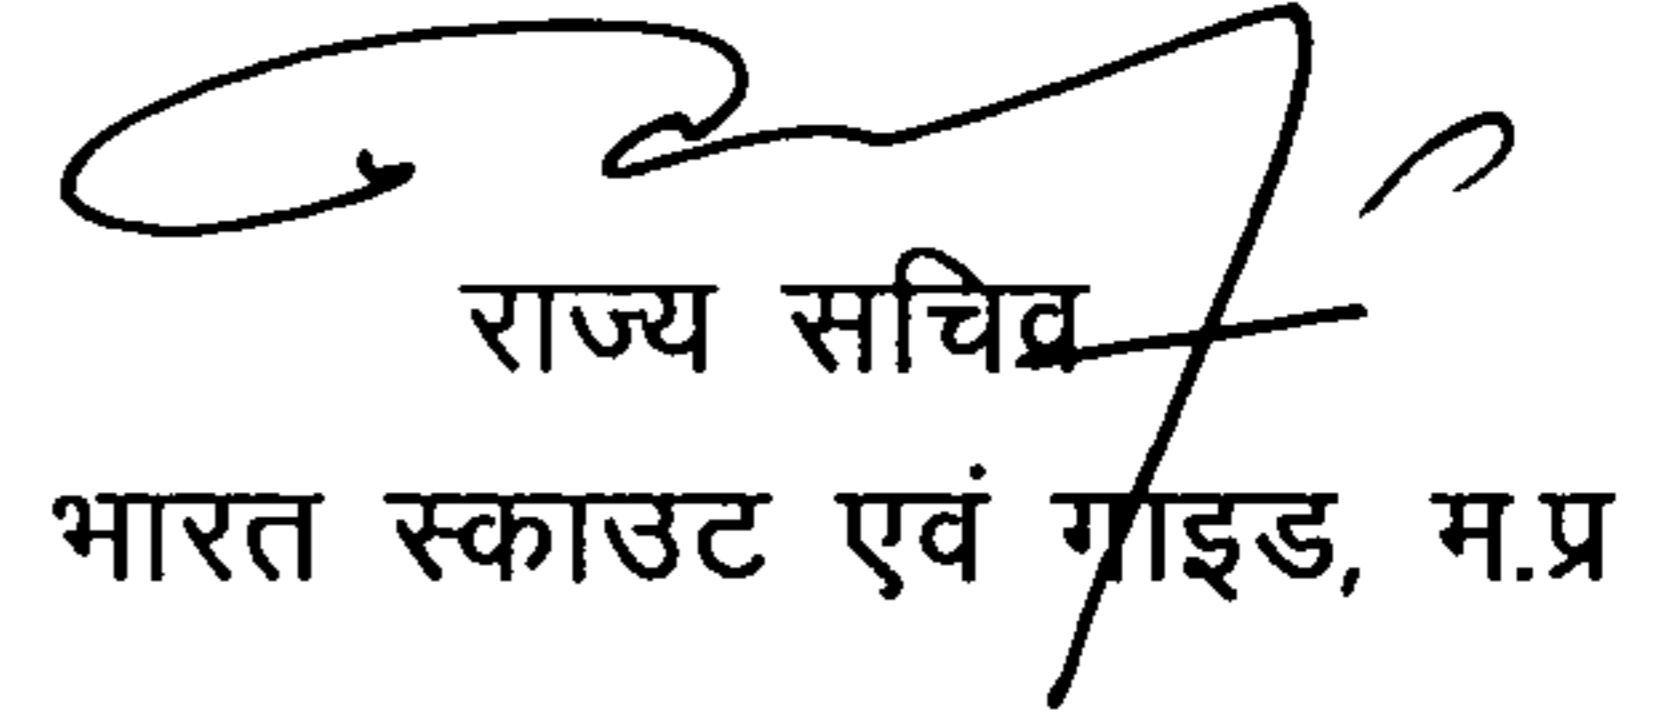 राज्य सचिव
भारत स्काउट एवं गाइड, म.प्र